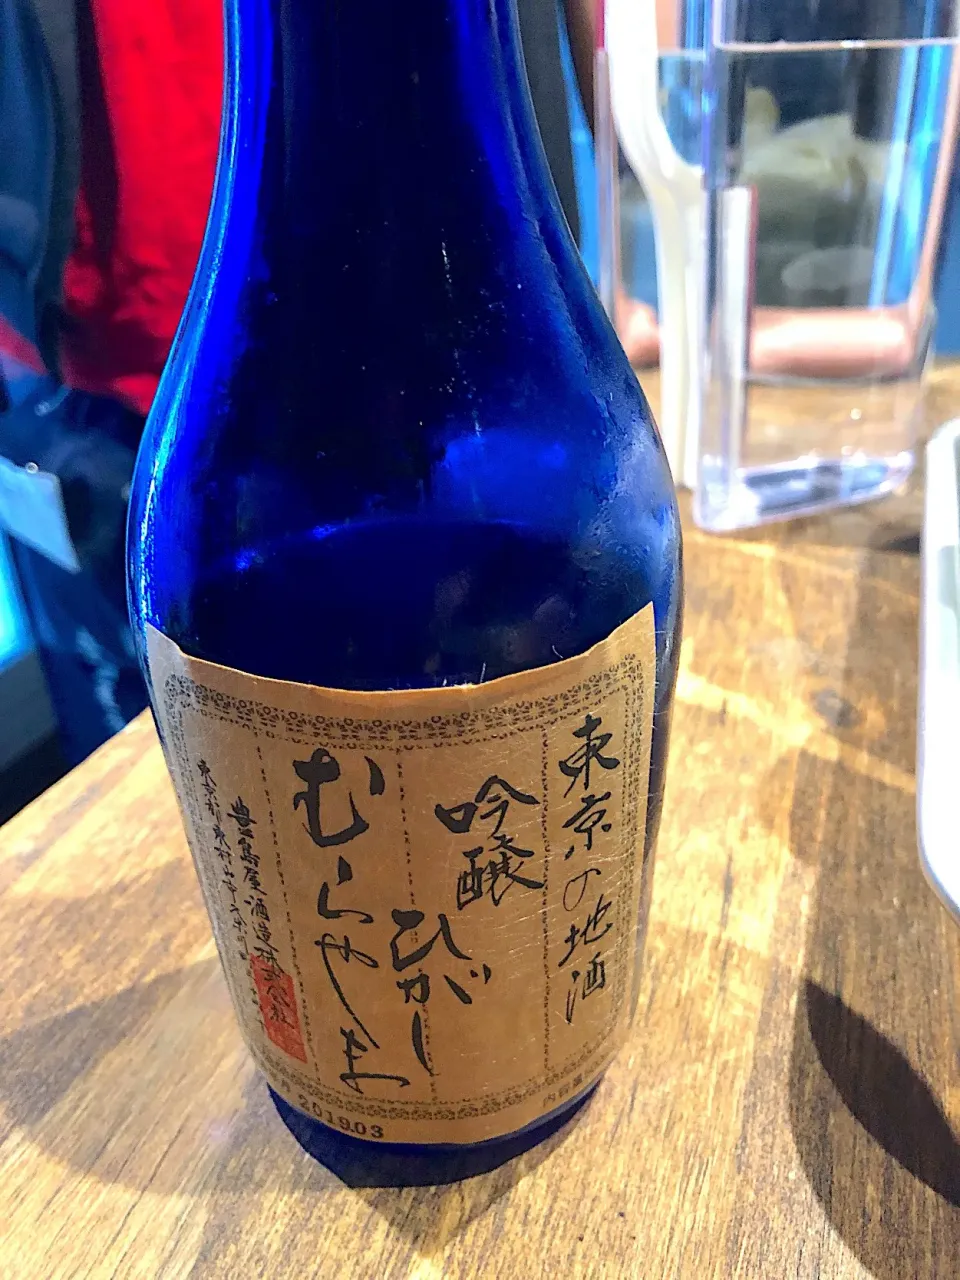 東京の地酒
吟醸
ひがし
むらやま
豊島屋酒造株式会社
東京都東村山市久米川町
月 2019.03
内容量